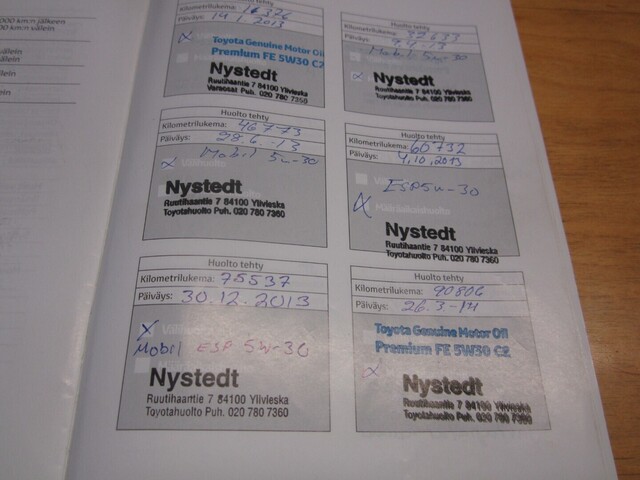 000 km:n jälkeen
Kilometrilukema:
Päiväys: 14 1 2013
Toyota Genuine Motor Oil
Premium FE 5W30 C2
Nystedt
Ruutihaantie 7 84100 Ylivieska
Varaosat Puh. 020 780 7350
Huolto tehty
Kilometrilukema:
Päiväys:
Mobil 5w-30
Nystedt
Ruutihaantie 7 84100 Ylivieska
Toyotahuolto Puh. 020 780 7360
Huolto tehty
Kilometrilukema: 46773
Päiväys: 28.6.-13
Mobil 5w-30
Nystedt
Ruutihaantie 7 84100 Ylivieska
Toyotahuolto Puh. 020 780 7360
Huolto tehty
Kilometrilukema: 60732
Päiväys: 4,10,2013
ESP 5w-30
Nystedt
Ruutihaantie 7 84100 Ylivieska
Toyotahuolto Puh. 020 780 7360
Huolto tehty
Kilometrilukema: 75537
Päiväys: 30.12.2013
Mobil ESP 5W-30
Nystedt
Ruutihaantie 7 84100 Ylivieska
Toyotahuolto Puh. 020 780 7360
Huolto tehty
Kilometrilukema: 90806
Päiväys: 26.3-14
Toyota Genuine Motor Oil
Premium FE 5W30 C2
Nystedt
Ruutihaantie 7 84100 Ylivieska
Toyotahuolto Puh. 020 780 7360